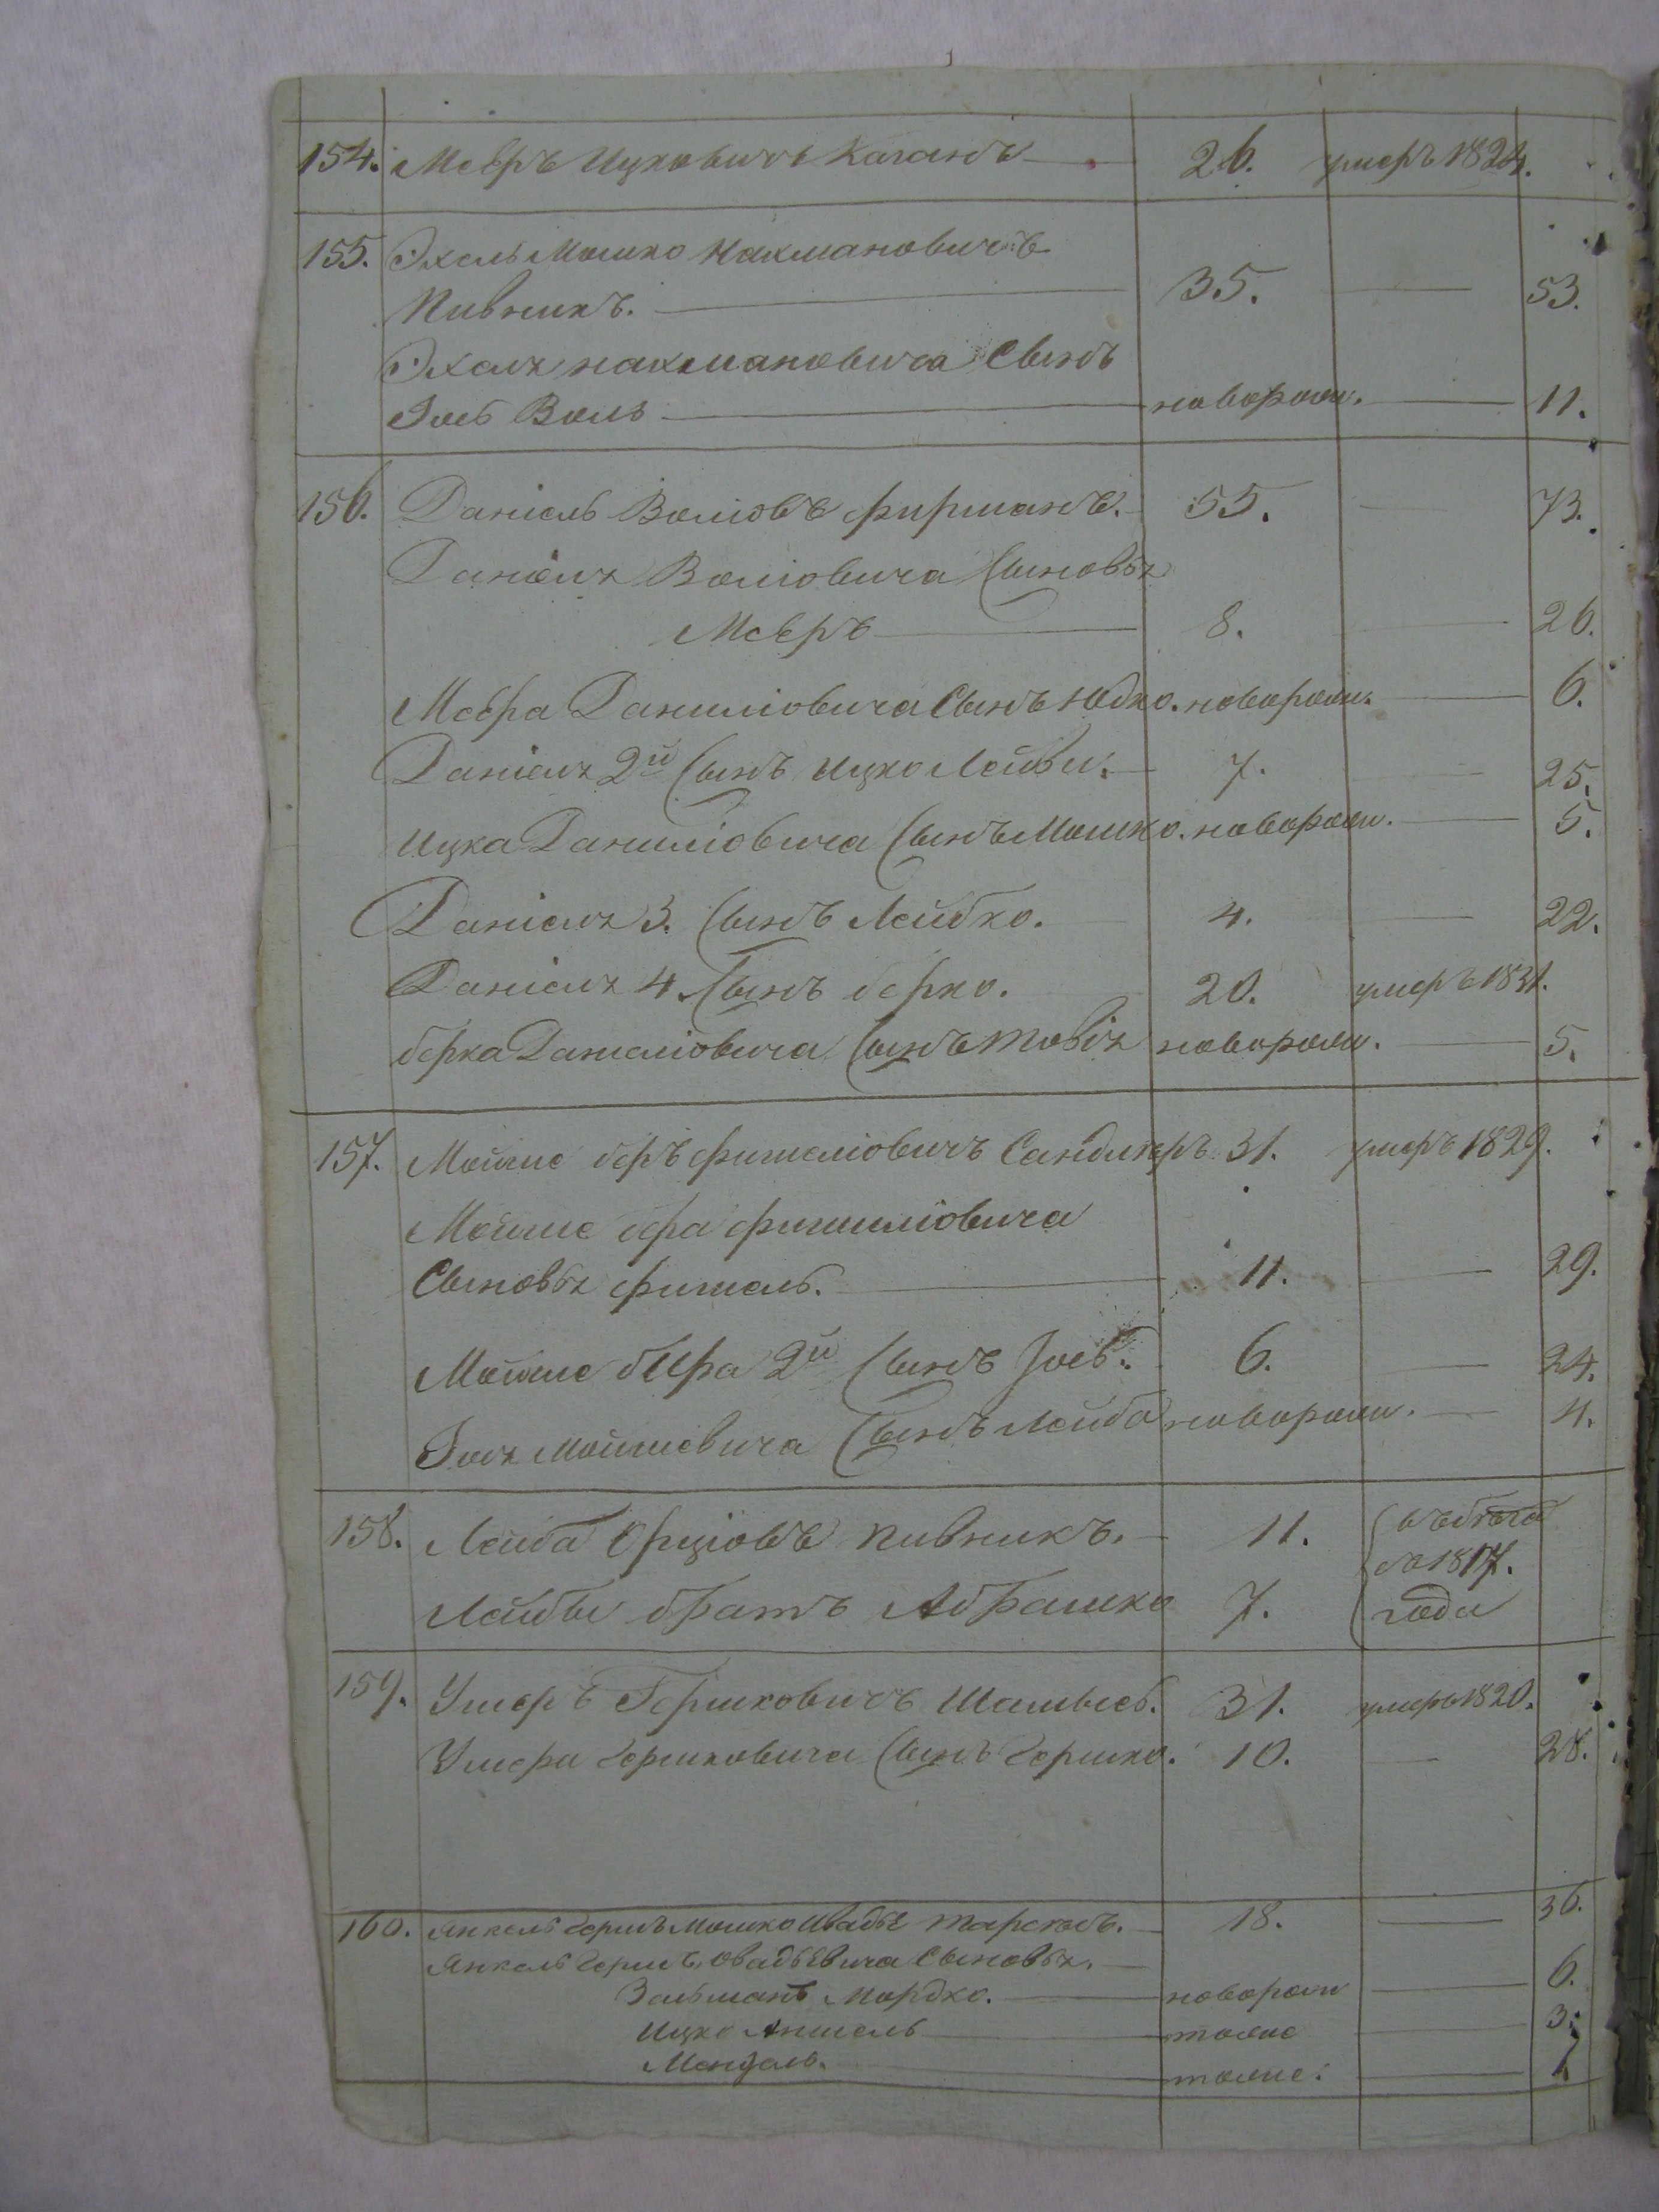 154. Мееръ Ицковичъ Каганъ 26. умеръ 1824.
155. Эхель Мошко Нахмановичъ
Пивникъ. 35. 53.
Эхеля Нахмановича Сынъ
Іось Воль новорож. 11.
156. Даніель Воліовъ фирманъ. 55. 73.
Даніеля Воліовича Сыновья
Мееръ 8. 26.
Меера Даниліовича Сынъ Юдко. новорож. 6.
Даніеля 2й Сынъ Ицко Лейби. 7. 25.
Ицка Даниліовича Сынъ Мошко. новорож. 5.
Даніеля 3. Сынъ Лейбко. 4. 22.
Даніеля 4. Сынъ берко. 20. умеръ 1831.
берка Даніеліовича Сынъ товія новорож. 5.
157. Мойше беръ фишеліовичъ Сандлеръ 31. умеръ 1829.
Мойше бера фишиліовича
Сыновья фишель. 11. 29.
Мойше бера 2й Сынъ Іось. 6. 24.
Іося Мойшевича Сынъ Лейба новорож. 4.
158. Лейба Орціовъ Пивникъ. 11. въ бѣгахъ
Лейбы братъ Абрашко 7. съ 1817. года
159. Умеръ Гершковичъ 31. умеръ 1820.
Умера Гершковича Сынъ Гершко. 10. 28.
160. Янкель Гершъ Мошко Ивадье 18. 36.
Янкель Гершъ Овадьевича Сыновья.
Зальманъ Мордко. новорож 6.
Ицко Аншель тоже 3.
Мендель. тоже. 1